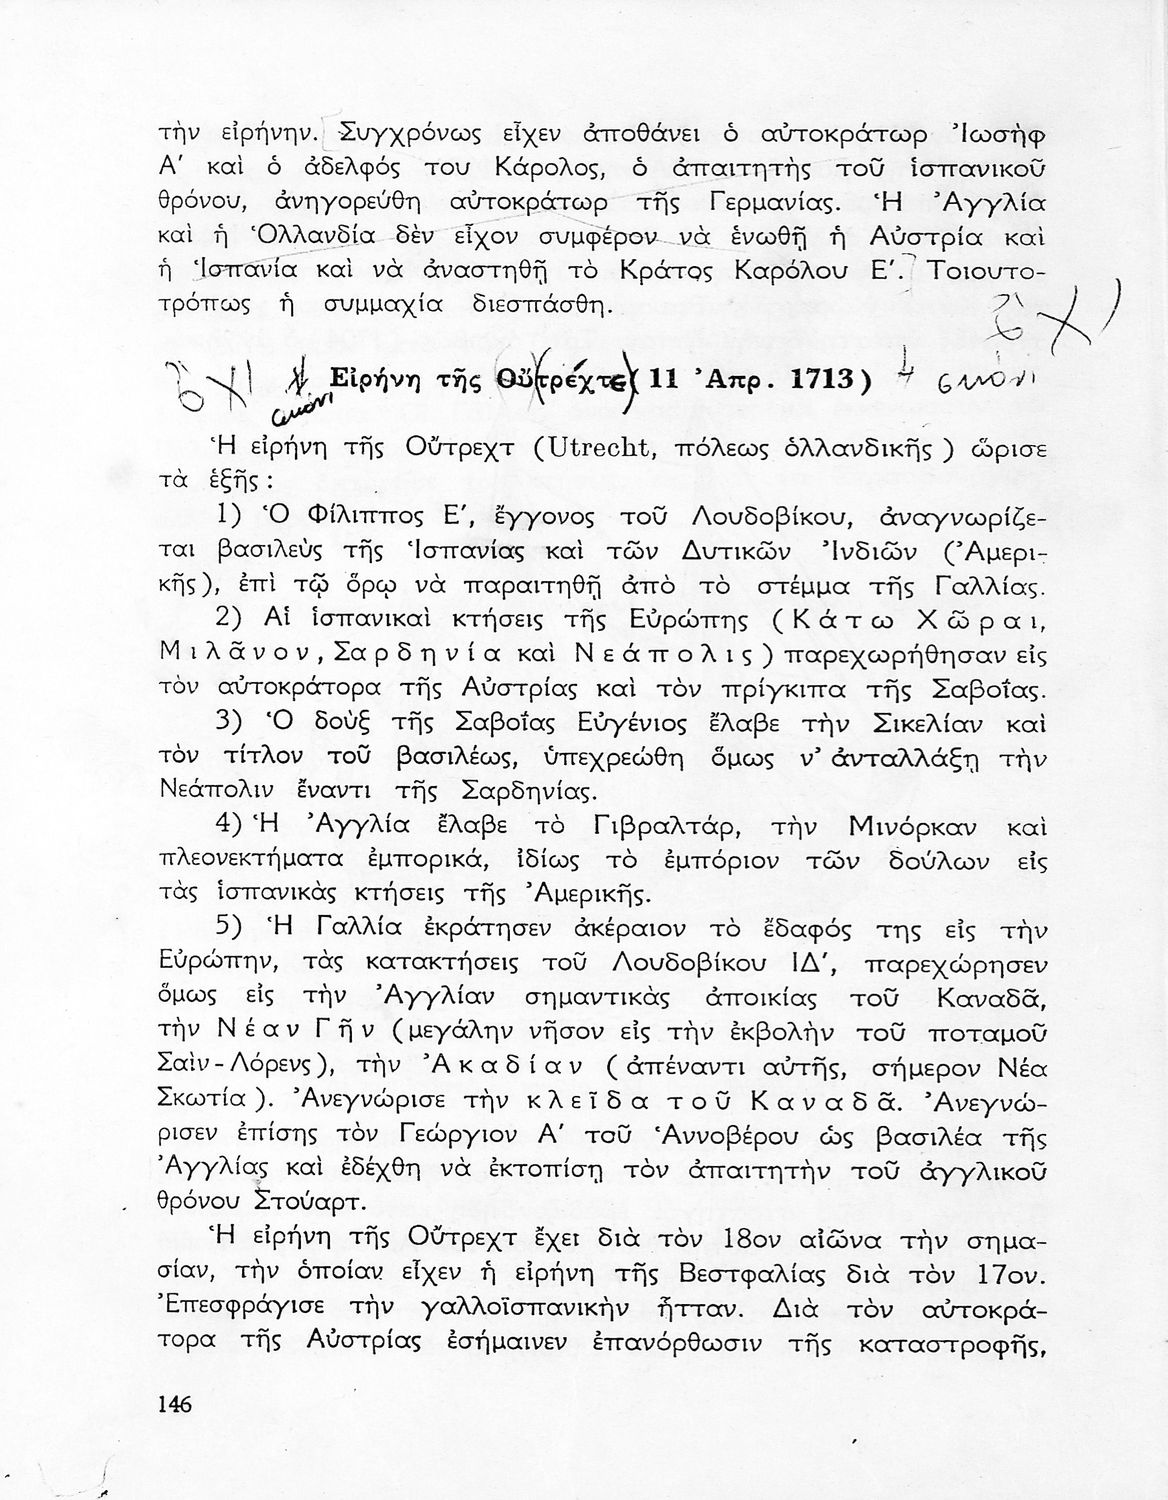 τὴν εἰρήνην. Συγχρόνως εἶχεν ἀποθάνει ὁ αὐτοκράτωρ Ἰωσὴφ
Α′ καὶ ὁ ἀδελφός του Κάρολος, ὁ ἀπαιτητὴς τοῦ ἱσπανικοῦ
θρόνου, ἀνηγορεύθη αὐτοκράτωρ τῆς Γερμανίας. Ἡ Ἀγγλία
καὶ ἡ Ὁλλανδία δὲν εἶχον συμφέρον νὰ ἑνωθῇ ἡ Αὐστρία καὶ
ἡ Ἱσπανία καὶ νὰ ἀναστηθῇ τὸ Κράτος Καρόλου Ε′. Τοιουτο-
τρόπως ἡ συμμαχία διεσπάσθη.
ὄχι
ὄχι Εἰρήνη τῆς Οὐτρέχτε (11 Ἀπρ. 1713) 4 εικόνι
εικόνι
Ἡ εἰρήνη τῆς Οὔτρεχτ (Utrecht, πόλεως ὁλλανδικῆς) ὥρισε
τὰ ἑξῆς:
1) Ὁ Φίλιππος Ε′, ἔγγονος τοῦ Λουδοβίκου, ἀναγνωρίζε-
ται βασιλεὺς τῆς Ἱσπανίας καὶ τῶν Δυτικῶν Ἰνδιῶν (Ἀμερι-
κῆς), ἐπὶ τῷ ὅρῳ νὰ παραιτηθῇ ἀπὸ τὸ στέμμα τῆς Γαλλίας.
2) Αἱ ἱσπανικαὶ κτήσεις τῆς Εὐρώπης (Κάτω Χῶραι,
Μιλᾶνον, Σαρδηνία καὶ Νεάπολις) παρεχωρήθησαν εἰς
τὸν αὐτοκράτορα τῆς Αὐστρίας καὶ τὸν πρίγκιπα τῆς Σαβοΐας.
3) Ὁ δοὺξ τῆς Σαβοΐας Εὐγένιος ἔλαβε τὴν Σικελίαν καὶ
τὸν τίτλον τοῦ βασιλέως, ὑπεχρεώθη ὅμως ν’ ἀνταλλάξῃ τὴν
Νεάπολιν ἔναντι τῆς Σαρδηνίας.
4) Ἡ Ἀγγλία ἔλαβε τὸ Γιβραλτάρ, τὴν Μινόρκαν καὶ
πλεονεκτήματα ἐμπορικά, ἰδίως τὸ ἐμπόριον τῶν δούλων εἰς
τὰς ἱσπανικὰς κτήσεις τῆς Ἀμερικῆς.
5) Ἡ Γαλλία ἐκράτησεν ἀκέραιον τὸ ἔδαφός της εἰς τὴν
Εὐρώπην, τὰς κατακτήσεις τοῦ Λουδοβίκου ΙΔ′, παρεχώρησεν
ὅμως εἰς τὴν Ἀγγλίαν σημαντικὰς ἀποικίας τοῦ Καναδᾶ,
τὴν Νέαν Γῆν (μεγάλην νῆσον εἰς τὴν ἐκβολὴν τοῦ ποταμοῦ
Σαὶν-Λόρενς), τὴν Ἀκαδίαν (ἀπέναντι αὐτῆς, σήμερον Νέα
Σκωτία). Ἀνεγνώρισε τὴν κλεῖδα τοῦ Καναδᾶ. Ἀνεγνώ-
ρισεν ἐπίσης τὸν Γεώργιον Α′ τοῦ Ἁννοβέρου ὡς βασιλέα τῆς
Ἀγγλίας καὶ ἐδέχθη νὰ ἐκτοπίσῃ τὸν ἀπαιτητὴν τοῦ ἀγγλικοῦ
θρόνου Στούαρτ.
Ἡ εἰρήνη τῆς Οὔτρεχτ ἔχει διὰ τὸν 18ον αἰῶνα τὴν σημα-
σίαν, τὴν ὁποίαν εἶχεν ἡ εἰρήνη τῆς Βεστφαλίας διὰ τὸν 17ον.
Ἐπεσφράγισε τὴν γαλλοϊσπανικὴν ἧτταν. Διὰ τὸν αὐτοκρά-
τορα τῆς Αὐστρίας ἐσήμαινεν ἐπανόρθωσιν τῆς καταστροφῆς,
146